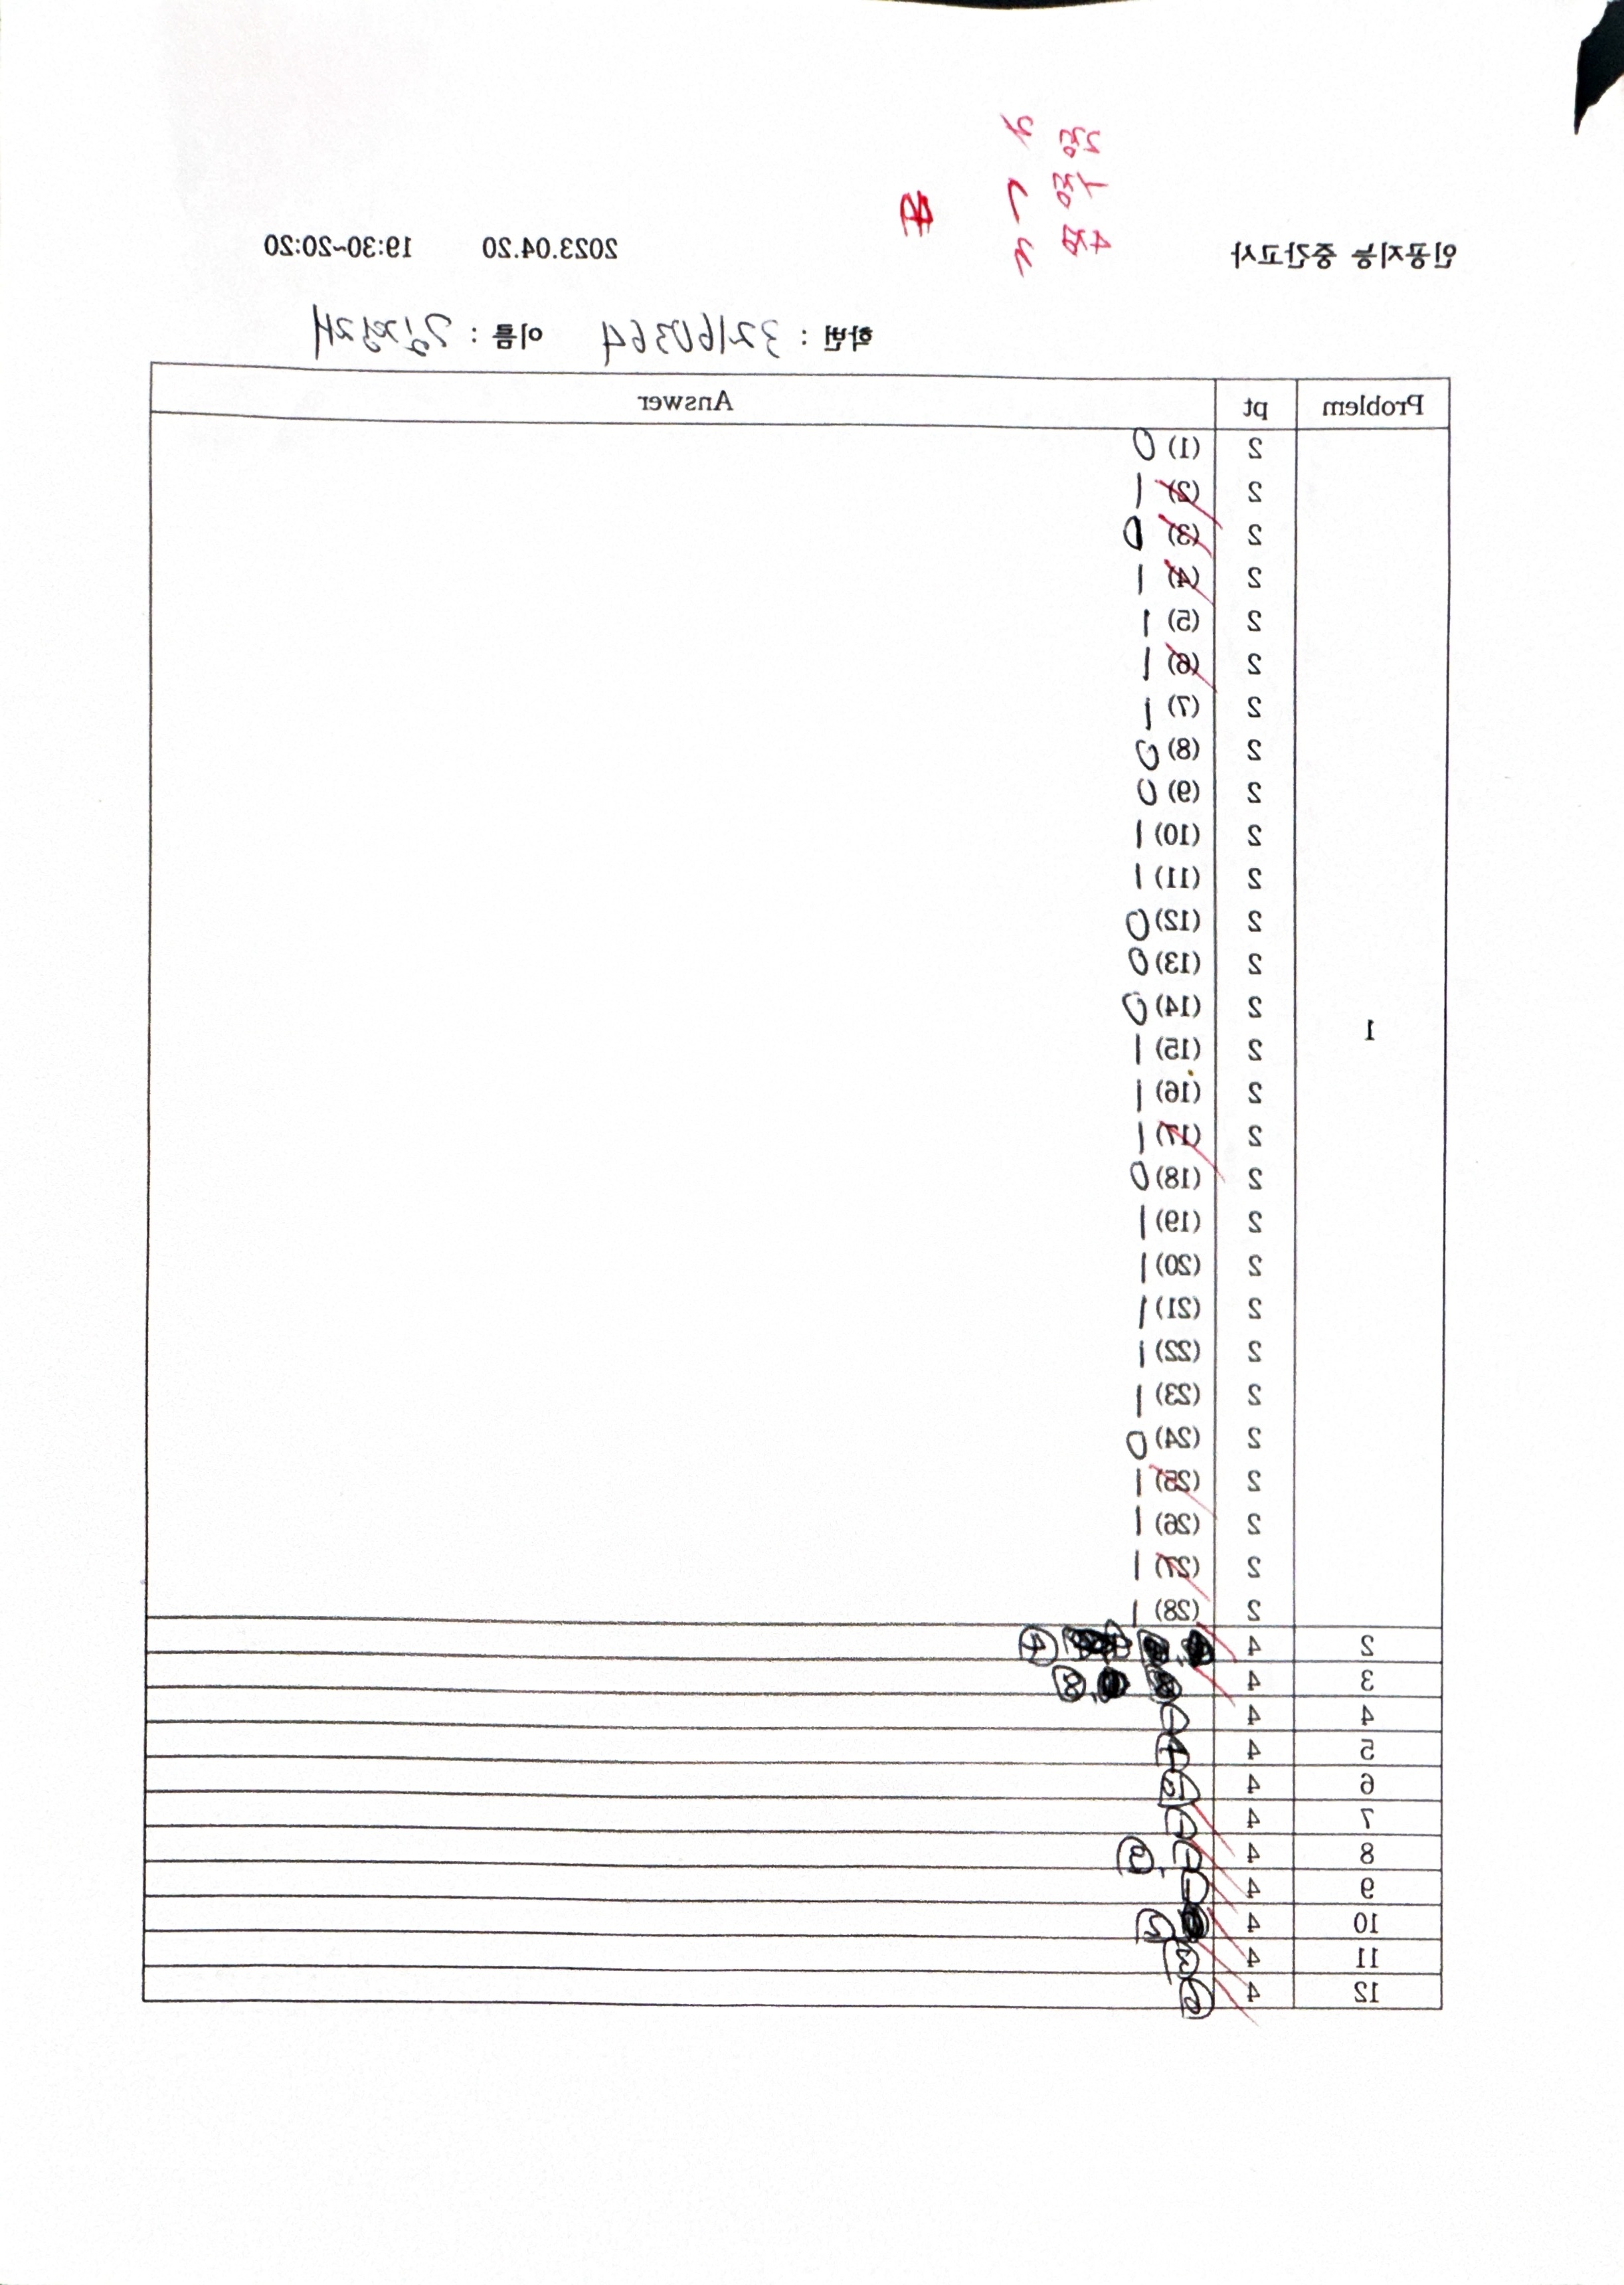 인공지능 중간고사 2023.04.20 19:30~20:20
2점
1점
4점
학번 : 32160364 이름 : 김정재
Problem pt Answer
1
2 (1) 0
2 (2) 1
2 (3) 0
2 (4) 1
2 (5) 1
2 (6) 1
2 (7) 1
2 (8) 0
2 (9) 0
2 (10) 1
2 (11) 1
2 (12) 0
2 (13) 0
2 (14) 0
2 (15) 1
2 (16) 1
2 (17) 1
2 (18) 0
2 (19) 1
2 (20) 1
2 (21) 1
2 (22) 1
2 (23) 1
2 (24) 0
2 (25) 1
2 (26) 1
2 (27) 1
2 (28) 1
2 4 ④
3 4 ⑧
4 4 ①
5 4 ④
6 4
7 4 ①
8 4 ①, ③
9 4 ①
10 4
11 4 ③
12 4